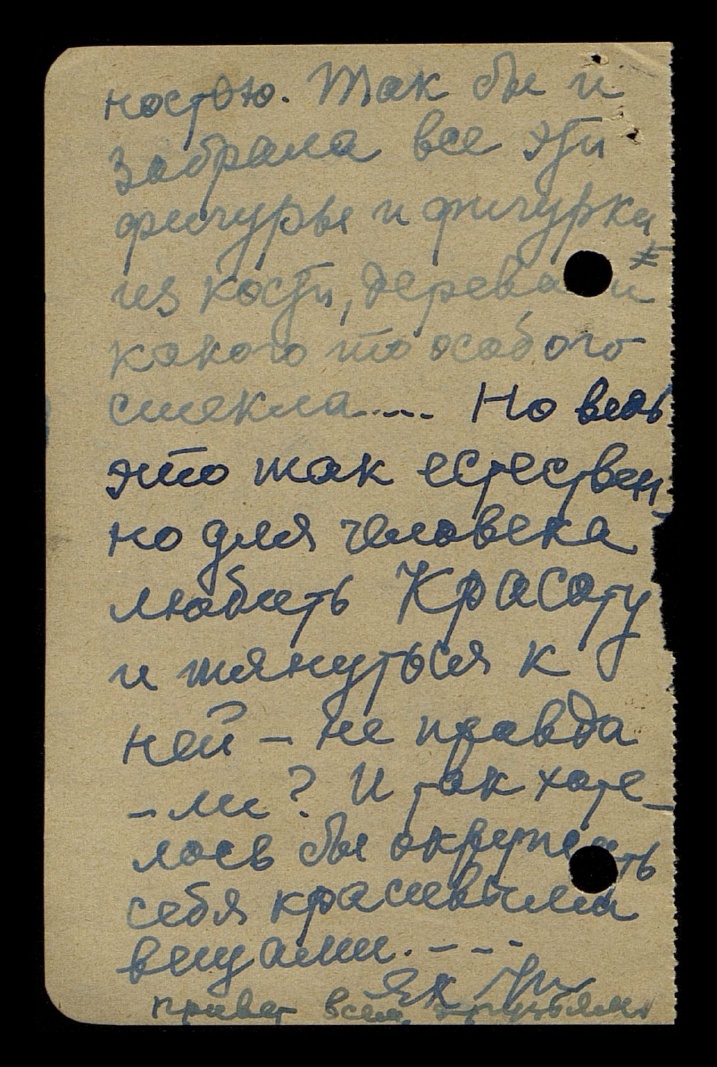 ностью. Так бы и
забрала все эти
фигуры и фигурки
из кости, дерева и
какого то особого
стекла.... Но ведь
это так естествен
но для человека
любить Красоту
и тянуться к
ней – не правда
– ли? И так хоте–
лось бы окружать
себя красивыми
вещами. – – –
Ек
привет всем друзьям